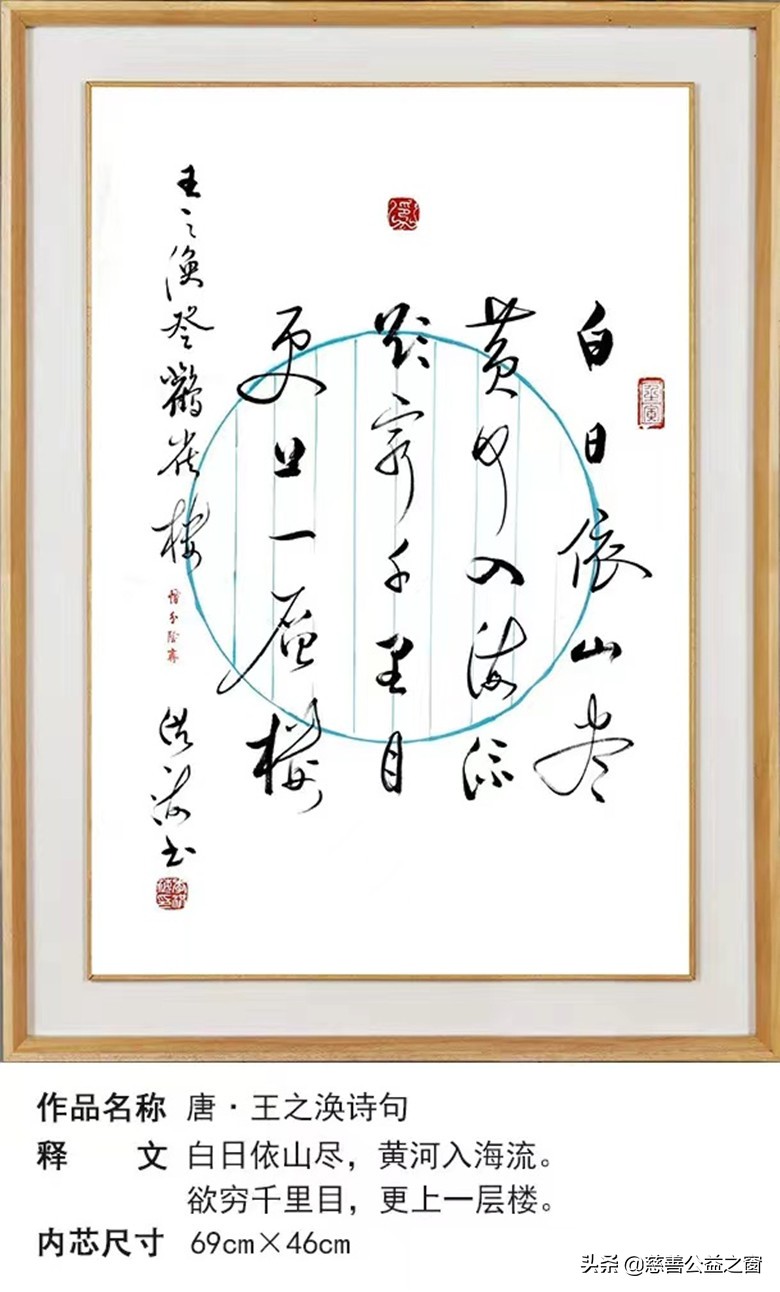 白日依山尽
黄河入海流
欲穷千里目
更上一层楼
王之涣登鹳雀楼
惜分阴斋
作品名称 唐·王之涣诗句
释文 白日依山尽，黄河入海流。
欲穷千里目，更上一层楼。
内芯尺寸 69cm×46cm
头条 @慈善公益之窗